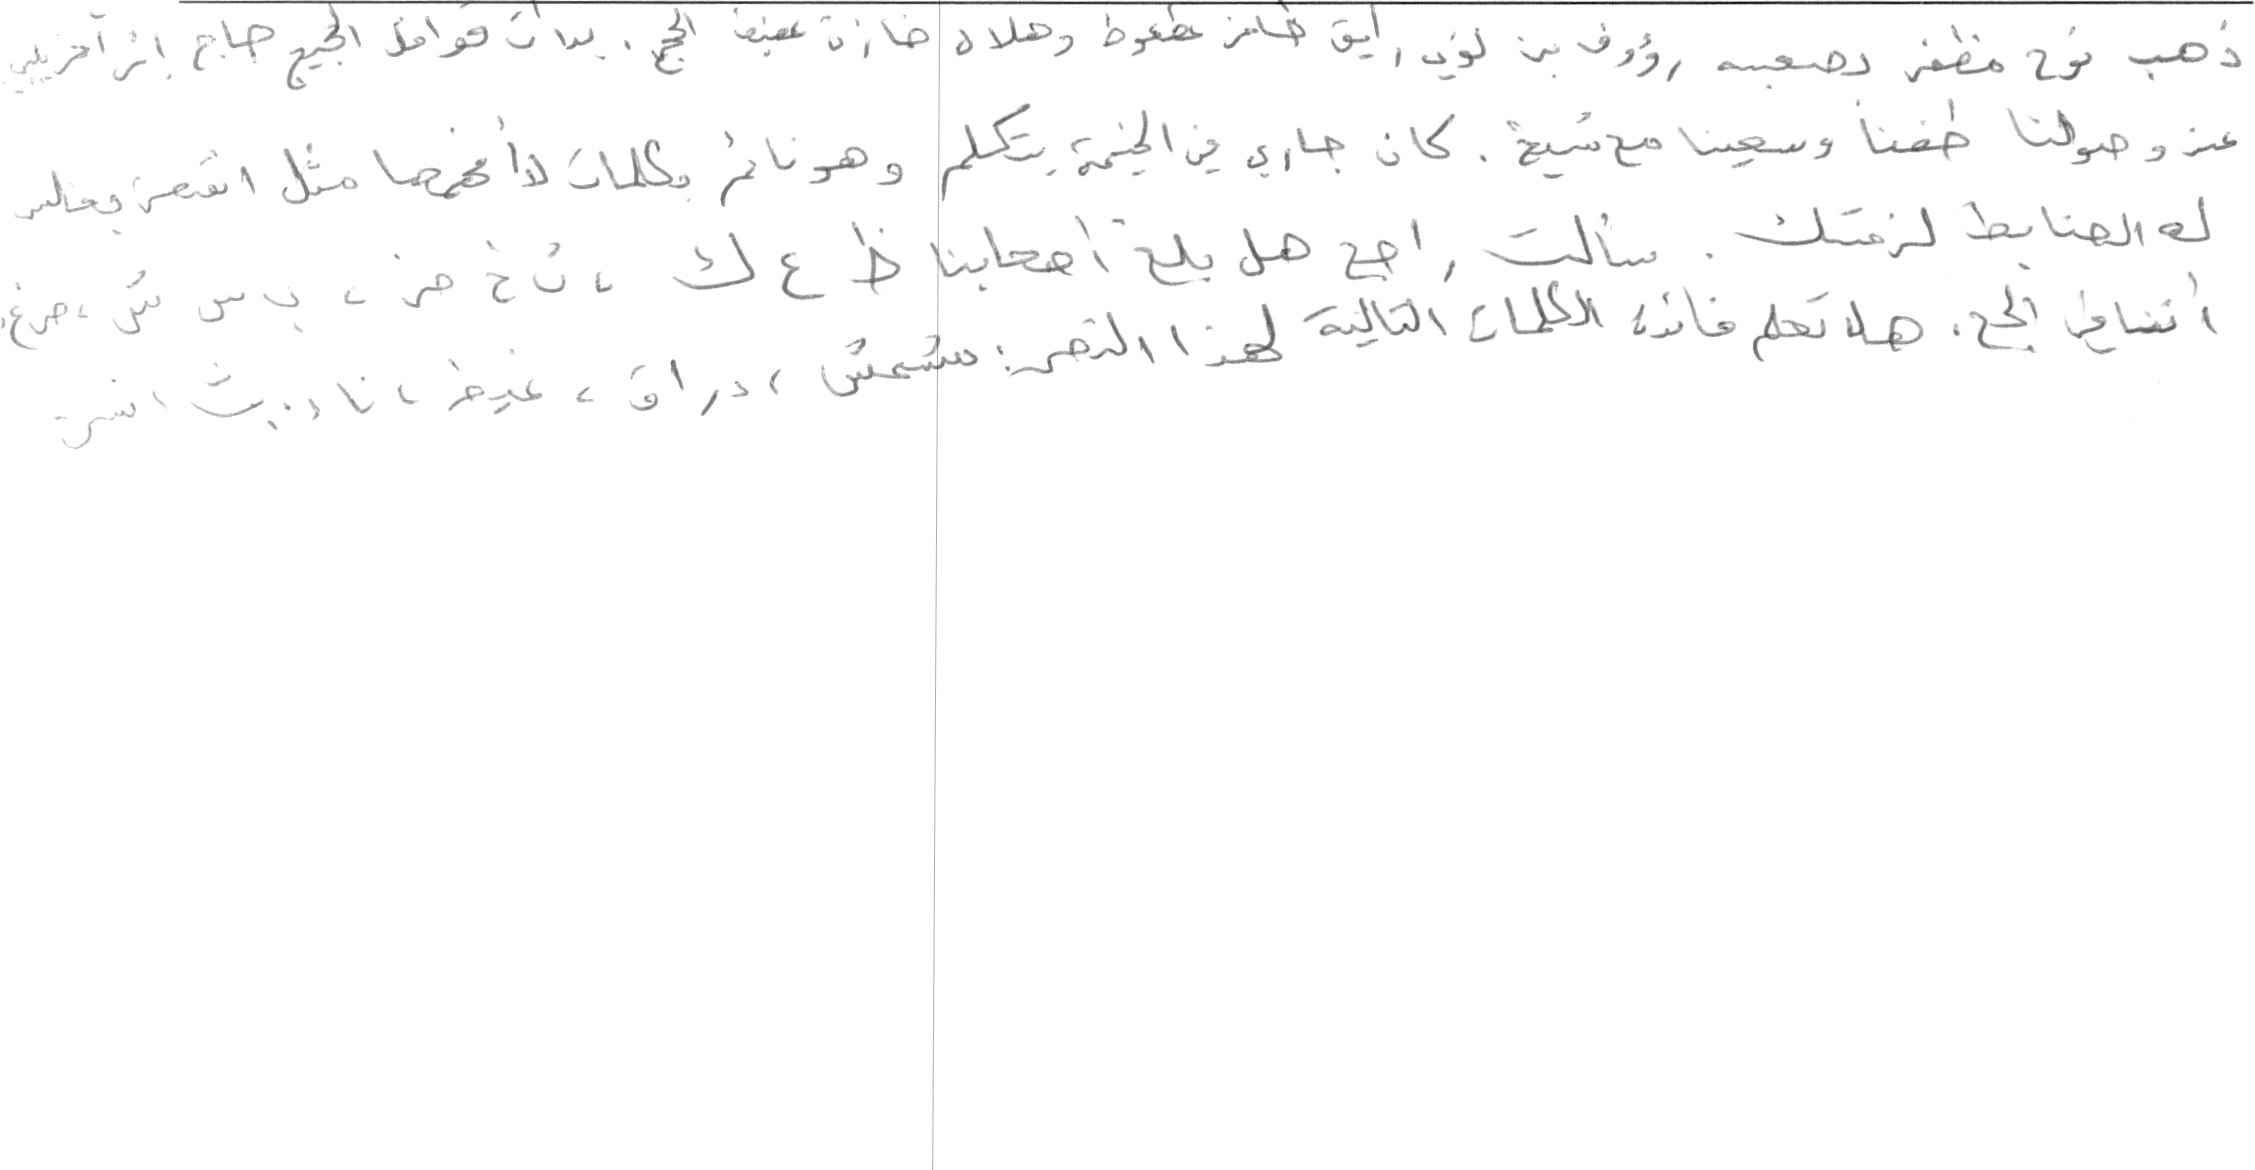 ذهب نوح مظفر بصحبه رؤوف بن لؤي رايق ظافر عطعوط وهلاه ضازن عفيف الحج. بدات قوافل الحجيج حاج إثر آخر يلبي
عند وصولنا طفنا وسعينا مع شيخ. كان جاري في الخيمة يتكلم وهو نائم بكلمات لا أفهمها مثل
له الضابط لزمتك. سألت راجح هل بلغ أصحابنا ظ ع ك ، ث خ ض ، ب س ش ،
الحج. هلا تعلم فائدة الكلمات التالية لهذا النص: مشمش ، دراق ، غيض ، نار،